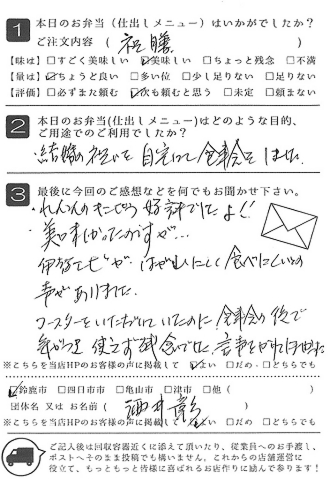 1 本日のお弁当（仕出しメニュー）はいかがでしたか？
ご注文内容 （ 祝膳 ）
【味は】□すごく美味しい ☑美味しい □ちょっと残念 □不満
【量は】☑ちょうど良い □多い位 □少し足りない □足りない
【評価】□必ずまた頼む ☑次も頼むと思う □未定 □頼まない
2 本日のお弁当（仕出しメニュー）はどのような目的、
ご用途でのご利用でしたか？
結婚の祝いを自宅にて食事会をしました。
3 最後に今回のご感想などを何でもお聞かせ下さい。
・れんこんのまんじゅう 好評でしたよ!!
・美味しかったのですが…
伊勢エビが はがしにくく食べにくいとの
声がありました。
コースターをいただいていたのに、食事会の後で
気がつき 使えず残念でした。
※こちらを当店HPのお客様の声に掲載して ☑よい □だめ・□どちらでも
☑鈴鹿市 □四日市市 □亀山市 □津市 □他（ ）
団体名 又は お名前（ 酒井 ）
※こちらを当店HPのお客様の声に掲載して ☑よい □だめ □どちらでも
ご記入後は回収容器近くに添えて頂いたり、従業員へのお手渡し、
ポストへそのまま投稿でも構いません。これからの店舗運営に
役立て、もっともっと皆様に喜ばれるお店作りに励んで参ります！